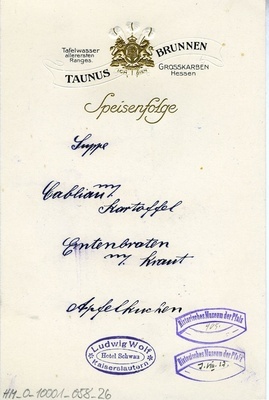 Tafelwasser
allerersten
Ranges.
TAUNUS BRUNNEN
GROSSKARBEN
Hessen
ICH DIEN
Speisenfolge
Suppe
Cabliau m/
Kartoffel
Entenbraten
m/ Kraut
Apfelkuchen
Ludwig Wolf
Hotel Schwan
Kaiserslautern
Historisches Museum der Pfalz
Historisches Museum der Pfalz
HM_0_10001_058_26